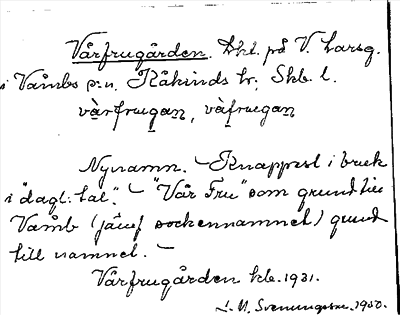 Vårfrugården. Lht. på V. Larsg.
i Våmbs sn. Kåkinds hr; Skb. l.
vàrfrugan, vàfruegan
Nynamn. – Knappast i bruk
i "dagl. tal". – "Vår Fru" som grund till
Vamb (jämf sockennamnet) grund
till namnet. –
Vårfrugården kb. 1931.
1930.